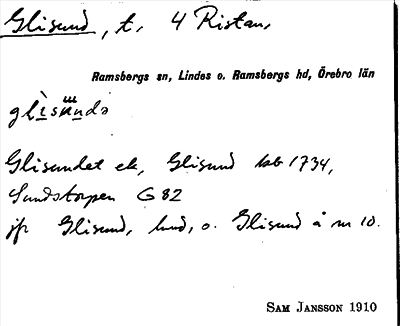 Glisund, t. 4 Ristan,
Ramsbergs sn, Lindes o. Ramsbergs hd, Örebro län
Glisundet ek, Glisund kab 1734,
Sundstorpen G 82
jfr Glisund, hmd, o. Glisund å m 10.
SAM JANSSON 1910